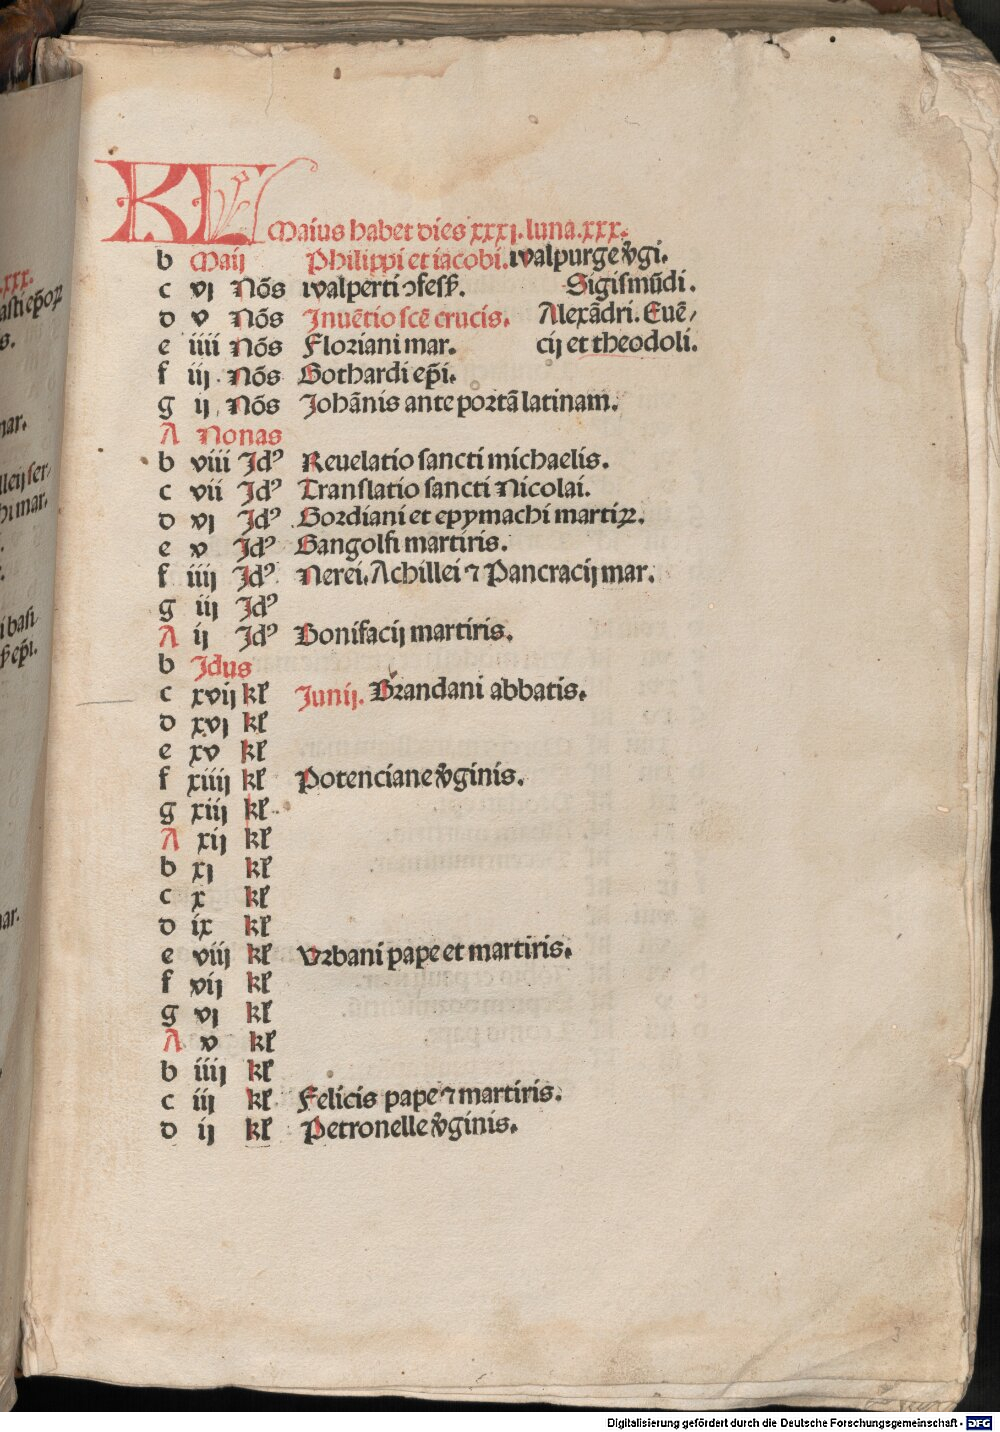 KL Maius habet dies xxxj. luna. xxx.
b Maij Philippi et iacobi. walpurge v̾gi.
c vj Nōs walperti ↄfess̄. Sigismūdi.
d v Nōs Inuētio scē crucis. Alexādri. Euē⸗
e iiij Nōs Floriani mar. cij et theodoli.
f iij. Nōs Gothardi ep̄i.
g ij Nōs Johānis ante portā latinam.
A Nonas
b viii Jdꝰ Reuelatio sancti michaelis.
c vii Jdꝰ Translatio sancti Nicolai.
d vj Jdꝰ Gordiani et epymachi martiꝝ.
e v Jdꝰ Gangolfi martiris.
f iiij Jdꝰ Nerei. Achillei ⁊ Pancracij mar.
g iij Jdꝰ
A ij Jdꝰ Bonifacij martiris.
b Jdus
c xvij kl̛ Junij. Brandani abbatis.
d xvj kl̛
e xv kl̛
f xiiij kl̛ Potenciane v̾ginis.
g xiij kl̛
A xij kl̛
b xj kl̛
c x kl̛
d ix kl̛
e viij kl̛ Urbani pape et martiris.
f vij kl̛
g vj kl̛
A v kl̛
b iiij kl̛
c iij kl̛ Felicis pape ⁊ martiris.
d ij kl̛ Petronelle v̾ginis.
3
Digitalisierung gefördert durch die Deutsche Forschungsgemeinschaft - DFG